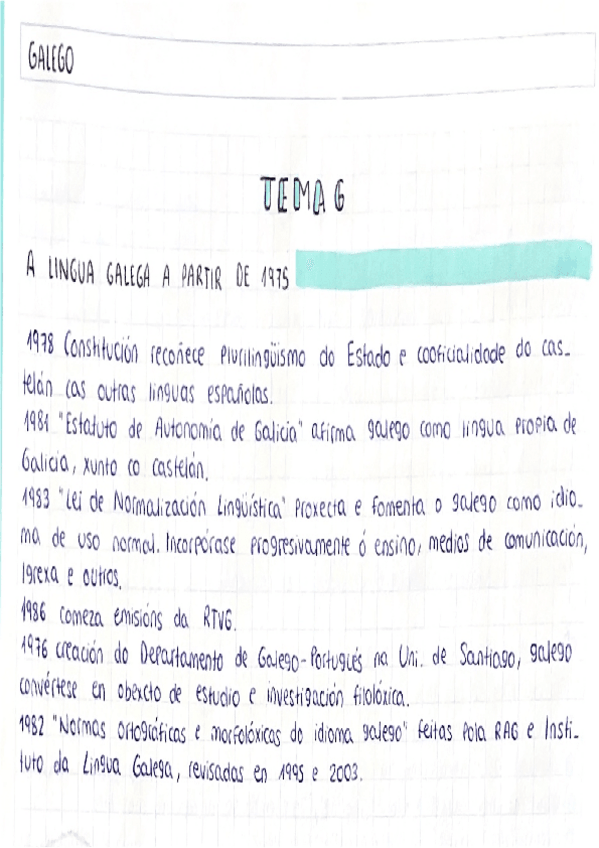 GALEGO
TEMA 6
A LINGUA GALEGA A PARTIR DE 1975
1978 Constitución recoñece plurilingüismo do Estado e cooficialidade do cas-
telán cas outras linguas españolas.
1981 "Estatuto de Autonomía de Galicia" afirma galego como lingua propia de
Galicia, xunto co castelán.
1983 "Lei de Normalización Lingüística" Proxecta e fomenta o galego como idio-
ma de uso normal. Incorpórase progresivamente ó ensino, medios de comunicación,
Igrexa e outros.
1986 comeza emisións da RTVG.
1976 creación do Departamento de Galego-Portugués na Uni. de Santiago, galego
convértese en obxecto de estudio e investigación filolóxica.
1982 "Normas ortográficas e morfolóxicas do idioma galego" feitas pola RAG e Insti-
tuto da Lingua Galega, revisadas en 1995 e 2003.